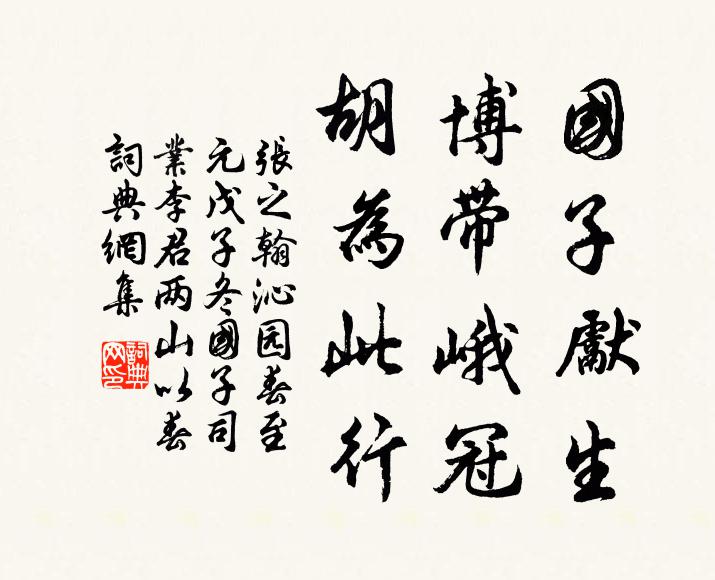 國子獻生
博帶峨冠
胡為此行
張之翰沁园春至
元戊子冬國子司
業李君两山以春
詞典網集
詞典
网印